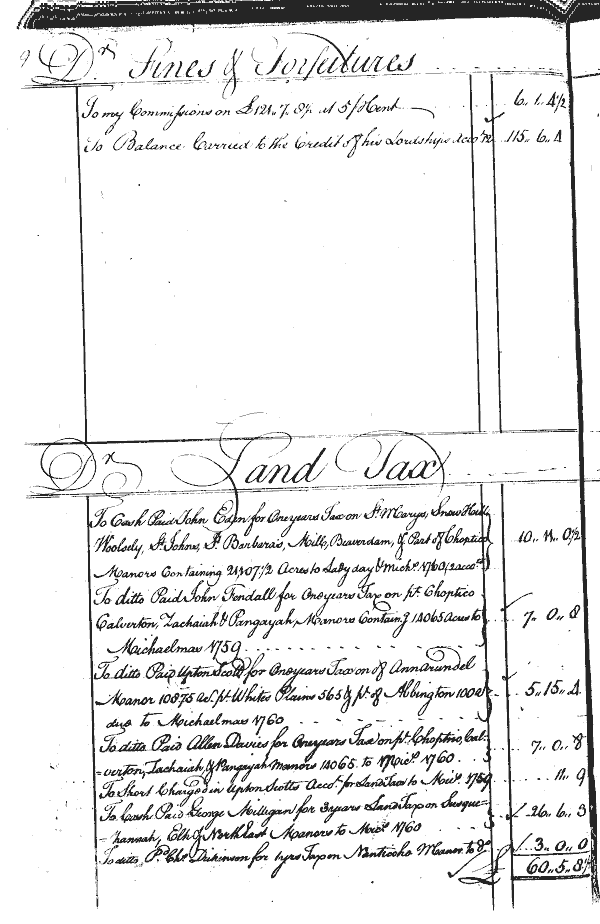 9 Dr. Fines & Forfeitures
To my Commissions on £121.. 7. 8½ at 5 ⅌ Cent 6.. 1.. 4½
To Balance Carried to the Credit of his Lordships Accot. 12 115.. 6.. 4
Dr. Land Tax
To Cash Paid John Eden for One years Tax on St. Marys, Snow Hill
Woolsely, St. Johns, St. Barbara's, Mill, Beaverdam, & Part of Choptico 10.. 11.. 0½
Manors Containing 21107½ Acres to Lady day & Michs. 1760/2 accots.
To ditto Paid John Fendall for One years Tax on pt. Choptico
Calverton, Zachaiah & Pangayah Manors Containg. 14065 Acres to 7.. 0.. 8
Michaelmas 1759
To ditto Paid Upton Scott for One years Tax on of Ann Arundel
Manor 10875 Ac. pt. Whites Plains 565 & pt. of Abbington 1000 5.. 15.. 4
due to Michaelmas 1760
To ditto Paid Allen Davies for One years Tax on pt. Choptico, Cal= 7.. 0.. 8
=verton, Zachaiah, & Pangayah Manors 14065. to Micls. 1760
To Short Charged in Upton Scotts Accot. for Land Tax to Micls. 1759 .. 11.. 9
To Cash Paid George Milligan for 3 years Land Tax on Susque= 26.. 6.. 3
=hannah, Elk & North East Manors to Micls. 1760
To ditto Pd. Chs. Dickinson for 1 yrs Tax on Nanticoke Manor to Do. 3.. 0.. 0
£ 60.. 5.. 8½